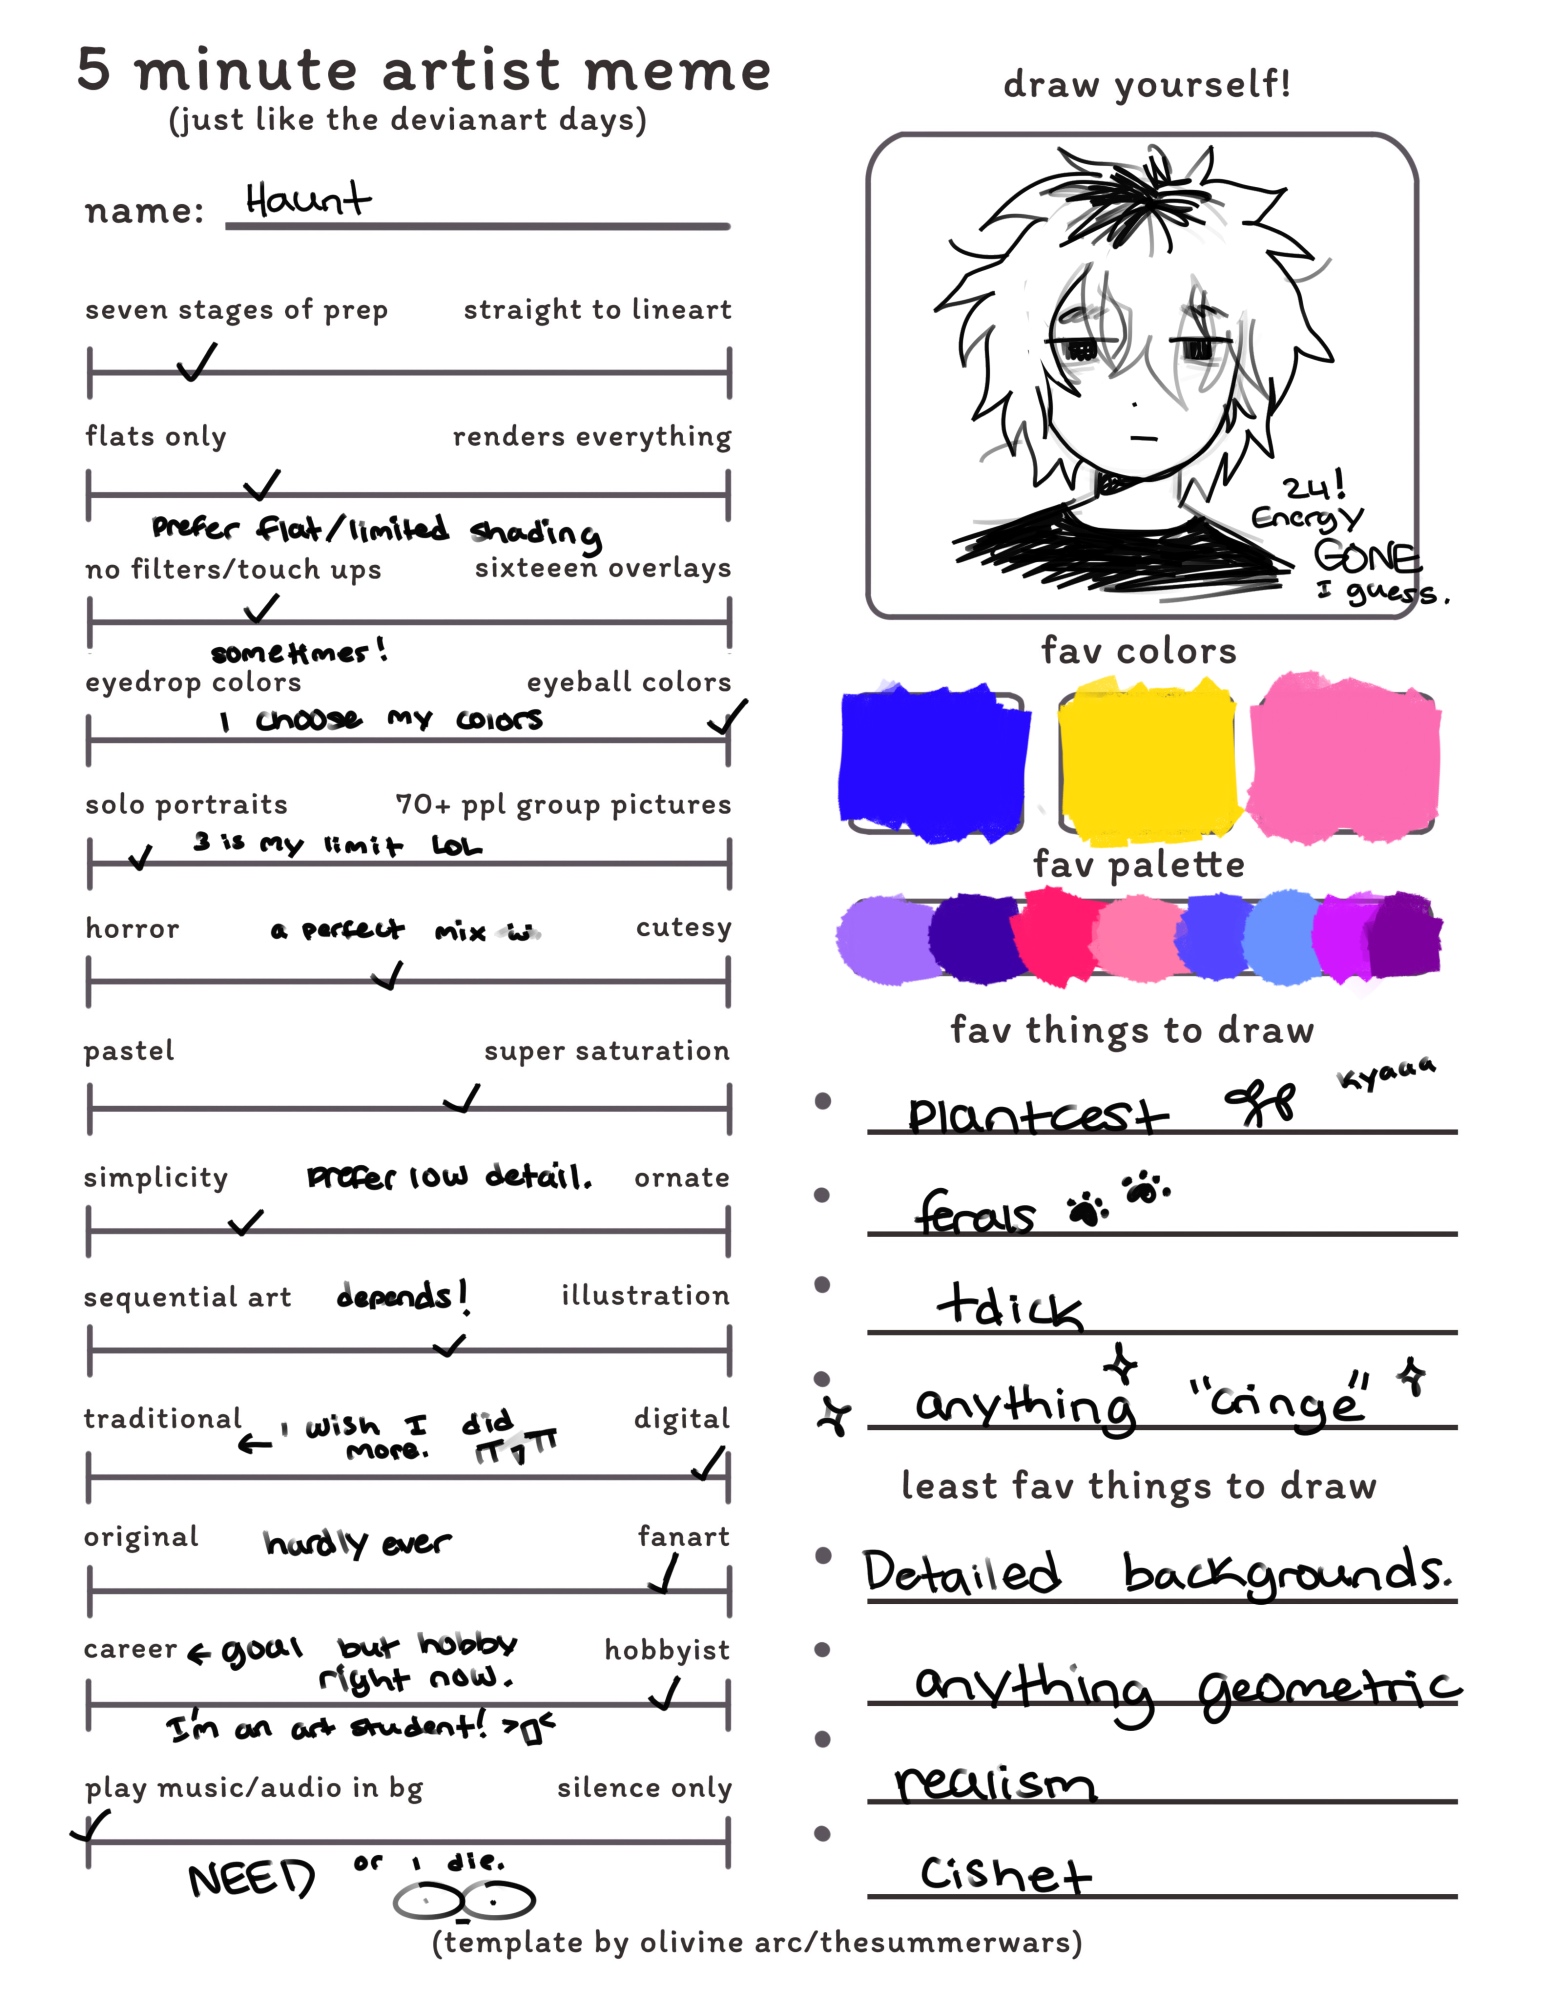 5 minute artist meme
(just like the devianart days)
name: Haunt
seven stages of prep straight to lineart
flats only renders everything
prefer flat/limited shading
no filters/touch ups sixteeen overlays
sometimes!
eyedrop colors eyeball colors
I choose my colors
solo portraits 70+ ppl group pictures
3 is my limit LOL
horror a perfect mix cutesy
pastel super saturation
simplicity prefer low detail. ornate
sequential art depends! illustration
traditional ← I wish I did digital
more.
original hardly ever fanart
career ← goal but hobby hobbyist
right now.
I'm an art student! >▯<
play music/audio in bg silence only
NEED or I die.
draw yourself!
24!
Energy
GONE
I guess.
fav colors
fav palette
fav things to draw
plantcest kyaaa
ferals
tdick
anything "cringe"
least fav things to draw
Detailed backgrounds.
anything geometric
realism
cishet
(template by olivine arc/thesummerwars)